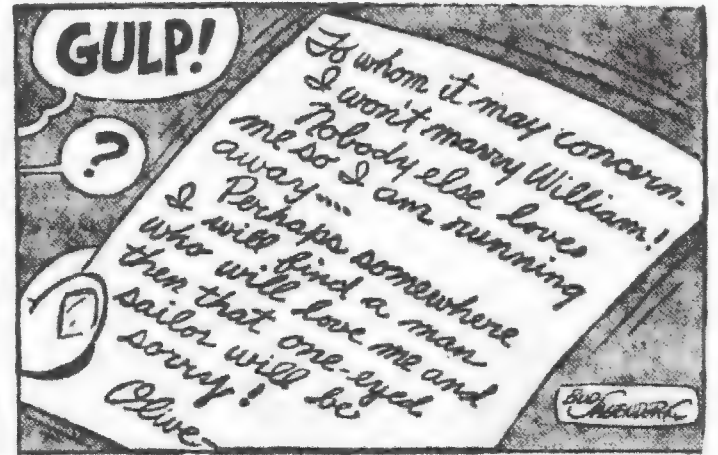 GULP!
?
To whom it may concern-
I won't marry William!
Nobody else loves
me so I am running
away....
Perhaps somewhere
I will find a man
who will love me and
then that one-eyed
sailor will be
sorry!
Olive
BUD SAGENDORF